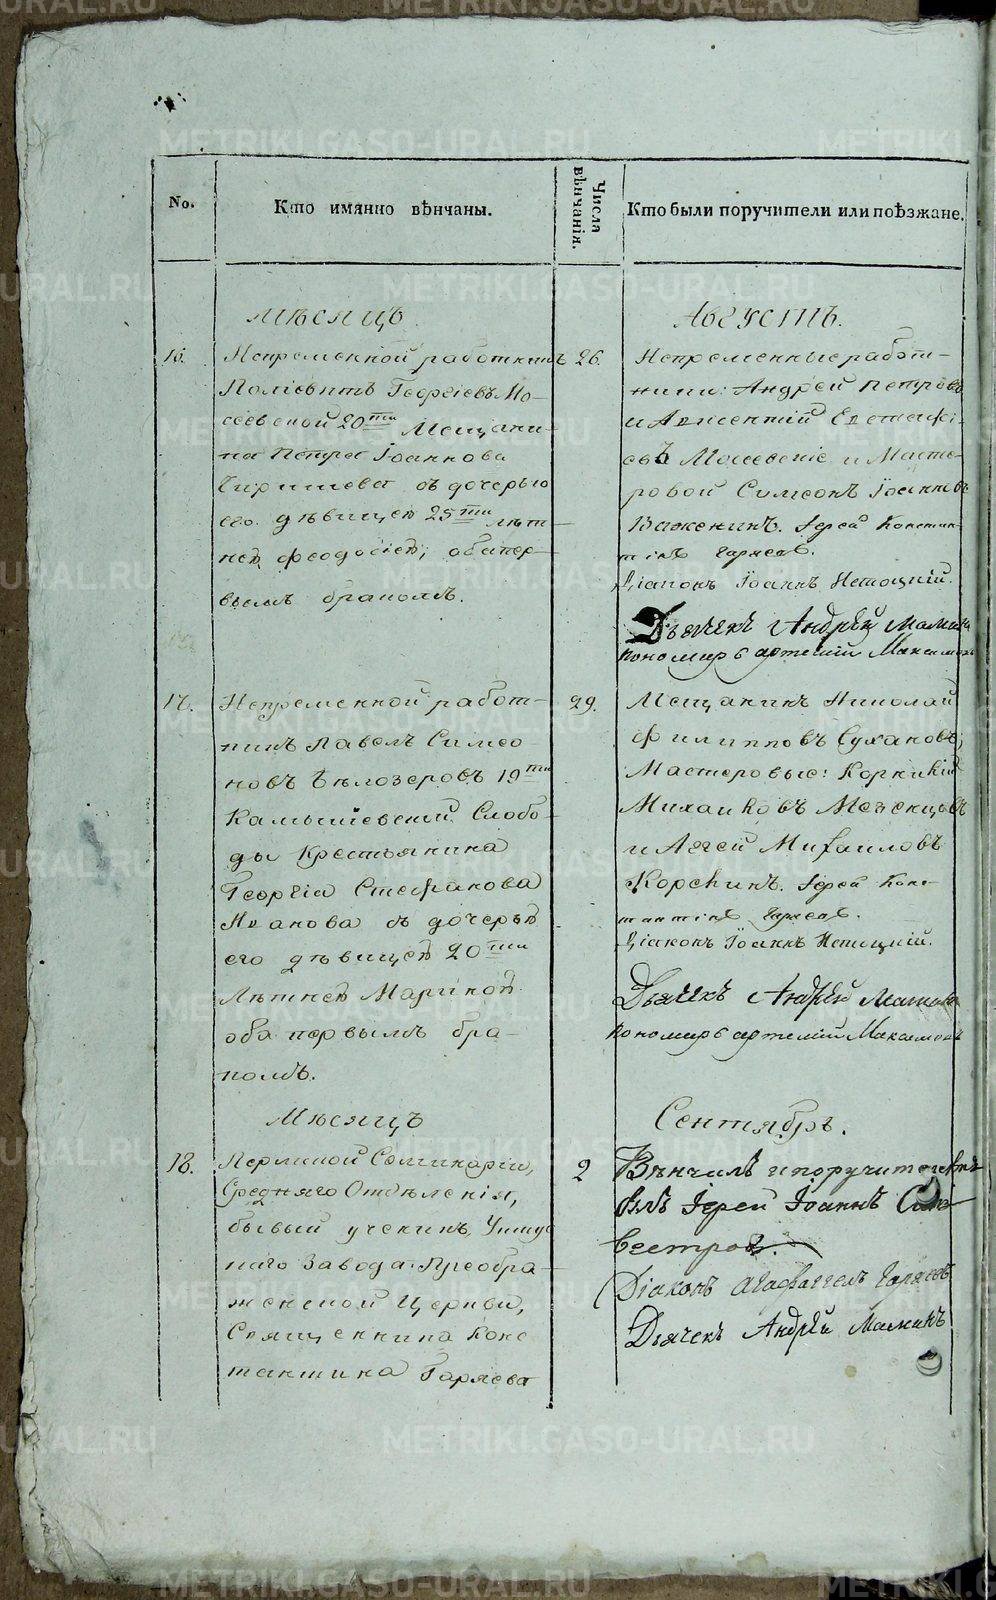 No.
Кто имянно вѣнчаны.
Числа вѣнчанія.
Кто были поручители или поѣзжане.
Мѣсяцъ
Августъ.
16.
Непременной работникъ
Георгіевъ Мо-
сеевской 20ти Мещани-
на Петра Іоаннова
съ дочерью
его дѣвицей 25ти лѣт-
ней феодосіей, оба пер-
вымъ бракомъ.
26.
Непременные работ-
ники: Андрей Петровъ
и Евстафі-
евъ Мосеевскіе и Масте-
ровой Симеонъ Іоанновъ
Важенинъ. Іерей Констан-
тінъ Гаряевъ.
Діаконъ Іоаннъ
Дьячекъ Андрѣй Маминъ
пономарь артемій Максимовъ
17.
Непременной работ-
никъ Павелъ Симео-
новъ Бѣлозеровъ 19ти
Камышевской Слобо-
ды Крестьянина
Георгіа Стефанова
Иванова съ дочерью
его дѣвицей 20ти
Лѣтней Мариной
оба первымъ бра-
комъ.
29.
Мещанинъ Николай
филипповъ Сухановъ,
Мастеровые: Корнилій
и Аггей Михаиловъ
Іерей Конс-
тантінъ Гаряевъ.
Діаконъ Іоаннъ
Дьячекъ Андрѣй Маминъ
пономарь артемій Максимовъ
Мѣсяцъ
Сентябрь.
18.
Пермской Семинаріи,
Средняго Отдѣленія,
бывый ученикъ,
Завода Преобра-
женской Церкви,
Священника Конс
тантина Гаряева
2
Вѣнчалъ и поручителемъ
былъ Іерей Іоаннъ Силь
вестровъ.
Діаконъ Агафаггелъ Гаряевъ
Дьячекъ Андрѣй Маминъ
METRIKI.GASO-URAL.RU